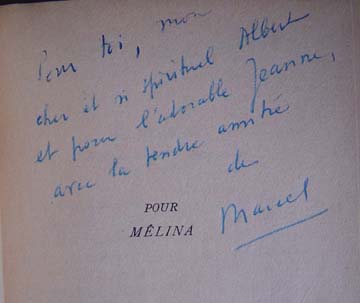 Pour toi, mon
cher et si spirituel Albert
et pour l'adorable Jeanne,
avec la tendre amitié
de
Marcel
POUR
MÊLINA